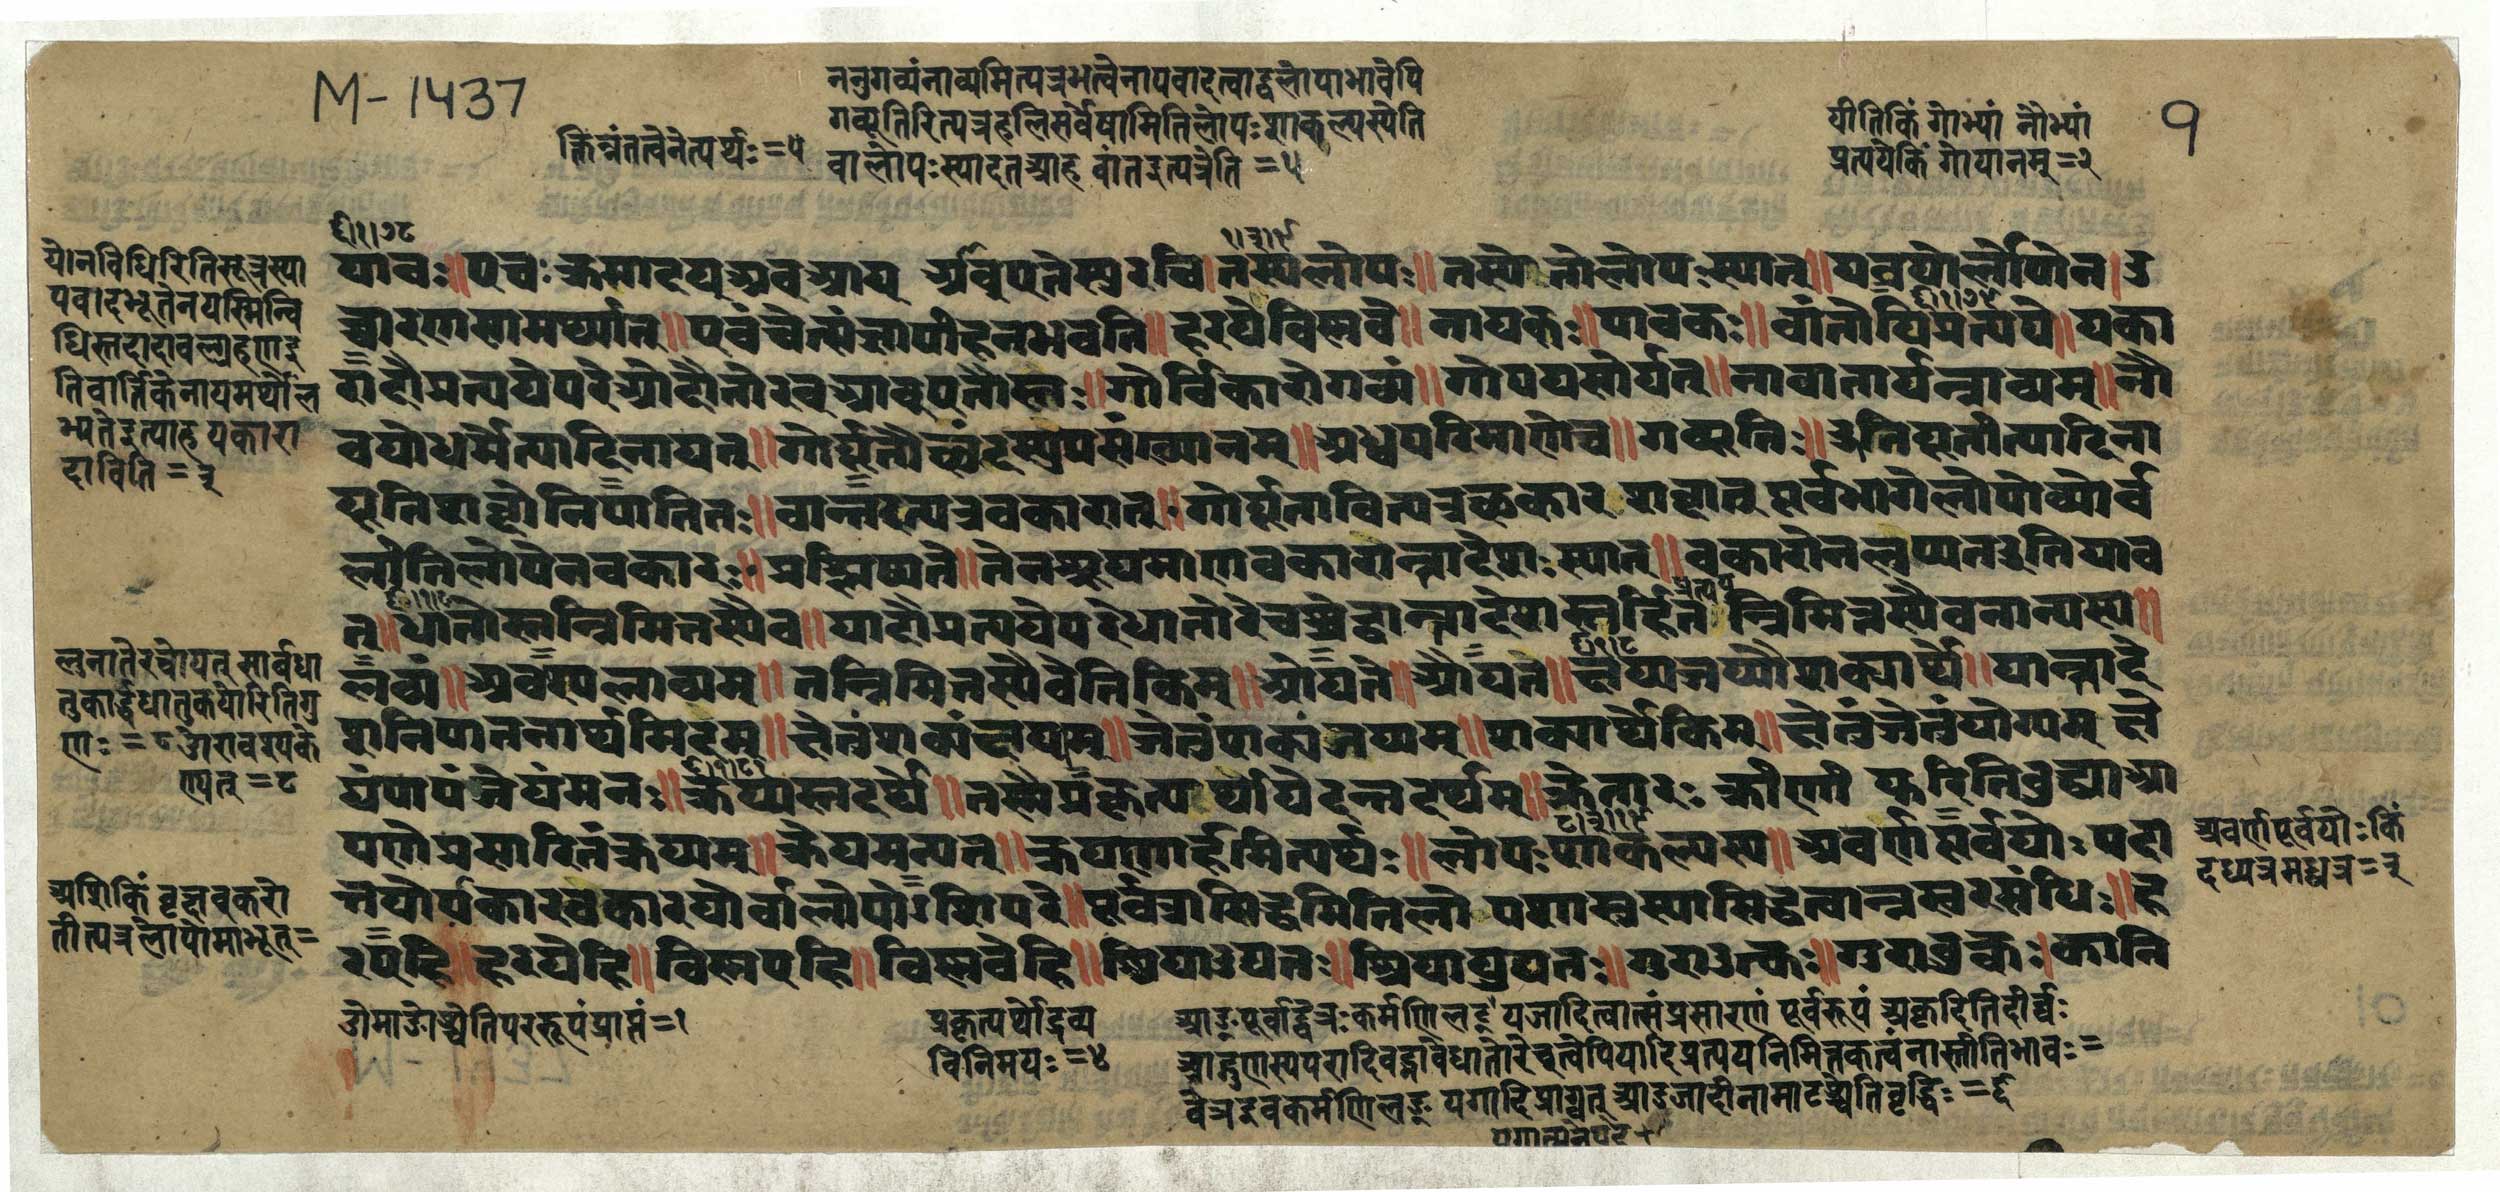 M-1437
ननुगव्यंनाव्यमित्यत्रभत्वेनापवादत्वाद्वलोपाभावेपि
गव्यूतिरित्यत्रहलिसर्वेषामितिलोपःशाकल्यस्येति
वालोपःस्यादतआह वांतइत्यत्रेति =५
=५
यीतिकिं गोभ्यां नौभ्यां
प्रत्ययेकिं गोयानम् =२
9
येनविधिरितिसूत्रस्या
पवादभूतेनयस्मिन्वि
धिस्तदादावल्ग्रहणइ
तिवार्तिकेनायमर्थोल
भ्यतेइत्याह यकारा
दाविति =३
६।१।७८
१।३।९
याचः॥एचः क्रमादयअवआय आव्एतेस्युरचि।तस्यलोपः॥तस्येतोलोपःस्यात्॥यवयोर्लोपोन।उ
च्चारणसामर्थ्यात्॥एवंचेत्संज्ञापीहनभवति॥हरयेविष्णवे॥नायकः॥पावकः॥वांतोयिप्रत्यये॥यका
६।१।७९
रादौप्रत्ययेपरेओदौतोरव्आव्एतौस्तः॥गोर्विकारोगव्यं॥गोपयसोर्यत्॥नावातार्यन्नाव्यम्॥नौ
वयोधर्मेत्यादिनायत्॥गोर्यूतौछंदस्युपसंख्यानम्॥अध्वपरिमाणेच॥गव्यूतिः॥ऊतियूतीत्यादिना
यूतिशब्दोनिपातितः॥वान्तइत्यत्रवकारात्॥गोर्यूतावित्यत्रछकार राद्वात् पूर्वभागेलोपोव्योर्व
लीतिलोपेनवकारः॥प्रश्लिष्यते॥तेनश्रूयमाणवकारान्तादेशःस्यात्॥वकारोनलुप्यतइतियाव
त्॥धातोस्तन्निमित्तस्यैव॥यादौप्रत्ययेपरेधातोरेचश्चेद्वान्तादेशस्तर्हित न्निमित्तस्यैवनान्यस्य॥
६।१।८
प्रत्यय
लव्यं॥अवश्यलाव्यम्॥तन्निमित्तस्यैवेतिकिम्॥ओयते॥औयत॥क्षय्यजय्यौशक्यार्थे॥यान्तादे
६।१।८
शनिपातनार्थमिदम्॥क्षेतुंशक्यंक्षय्यम्॥जेतुंशक्यंजय्यम्॥शक्यार्थेकिम्॥क्षेतुंजेतुंयोग्यम् क्षे
यंपापंजेयंमनः॥क्रय्यस्तदर्थे॥तस्मैप्रकृत्यर्थायेदन्तदर्थम्॥क्रेतारः क्रीणी युरितिबुद्ध्याआ
६।१।८२
पणेप्रसारितंक्रय्यम्॥क्रेयमन्यत्॥क्रयणार्हमित्यर्थः॥लोपःशाकल्यस्य॥अवर्णपूर्वयोः पदा
८।३।१९
न्तयोर्यकारवकारयोर्वालोपोऽशिपरे॥पूर्वत्रासिद्धमितिलो पशास्त्रस्यासिद्धत्वान्नस्वरसंधिः॥ह
रएहि॥हरयेहि॥विष्णएहि॥विष्णवेहि॥श्रियाउद्यतः॥श्रियायुद्यतः॥गुराउत्कः॥गुरावुत्कः।कानि
लुनातेरचोयत् सार्वधा
तुकार्द्धधातुकयोरितिगु
णः =८ओरावश्यके
ण्यत् =८
अशिकिं वृक्षवृकरो
तीत्यत्रलोपोमाभूत् =
अवर्णपूर्वयोः किं
दध्यत्रमध्वत्र =३
ओमाङोश्चेतिपररूपंप्राप्तं =१
प्रकृत्यर्थोद्रव्य
विनिमयः =४
आङ्पूर्वाद्वेञः कर्मणिलट् यजादित्वात्संप्रसारणं पूर्वरूपं अकृदितिदीर्घः
आद्गुणस्यपरादिवद्भावेधातोरेचत्वेपियादिप्रत्ययनिमित्तकत्वंनास्तीतिभावः =
वेञइवकर्मणिलङ् यगादिप्राग्वत् आडजादीनामाटश्चेतिवृद्धिः =६